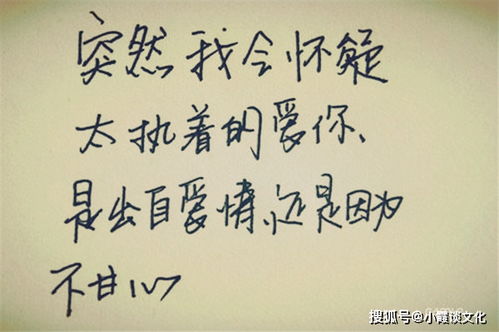 突然我会怀疑
太执着的爱你、
是出自爱情、还是因为
不甘心
搜狐号@小霞谈文化